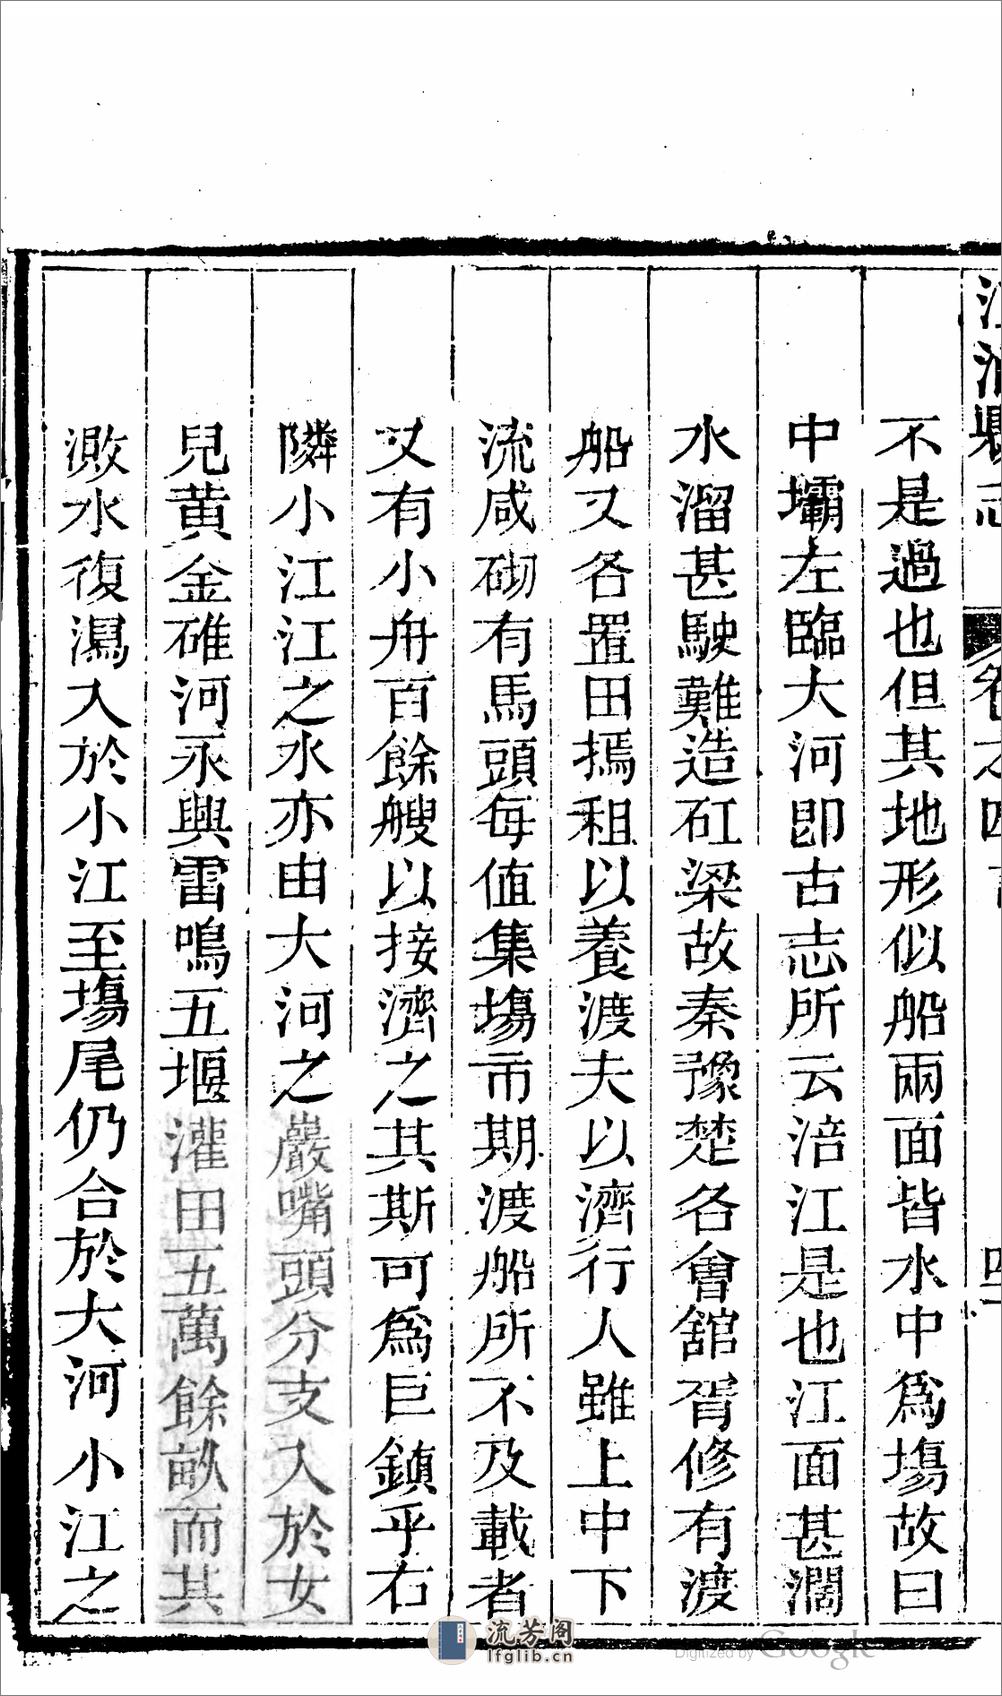 江油縣志 卷之四 四
不是過也但其地形似船兩面皆水中爲塲故曰
中壩左臨大河即古志所云涪江是也江面甚濶
水溜甚駛難造矼梁故秦豫楚各會舘胥修有渡
船又各置田撝租以養渡夫以濟行人雖上中下
流咸砌有馬頭每值集塲市期渡船所不及載者
又有小舟百餘艘以接濟之其斯可爲巨鎮乎右
隣小江江之水亦由大河之巖嘴頭分支入於女
兒黄金碓河永興雷鳴五堰灌田五萬餘畝而其
潡水復瀉入於小江至塲尾仍合於大河小江之
流芳閣
lfglib.cn
Digitized by Google